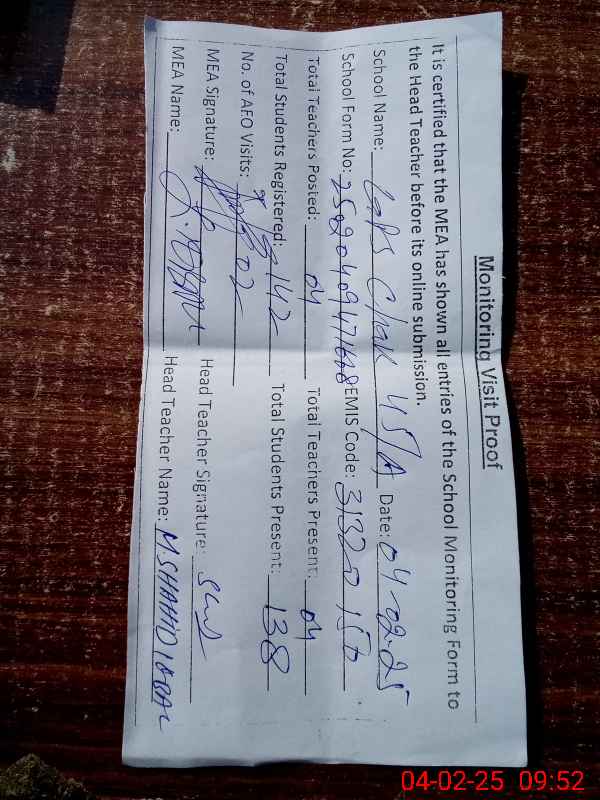 Monitoring Visit Proof
It is certified that the MEA has shown all entries of the School Monitoring Form to
the Head Teacher before its online submission.
School Name: GGPS Chak 45/A Date: 04-02-25
School Form No: EMIS Code: 31320150
Total Teachers Posted: 04 Total Teachers Present: 04
Total Students Registered: 142 Total Students Present: 138
No. of AFO Visits: 02
MEA Signature: Head Teacher Signature:
MEA Name: Head Teacher Name: M SHAHID IQBAL
04-02-25 09:52